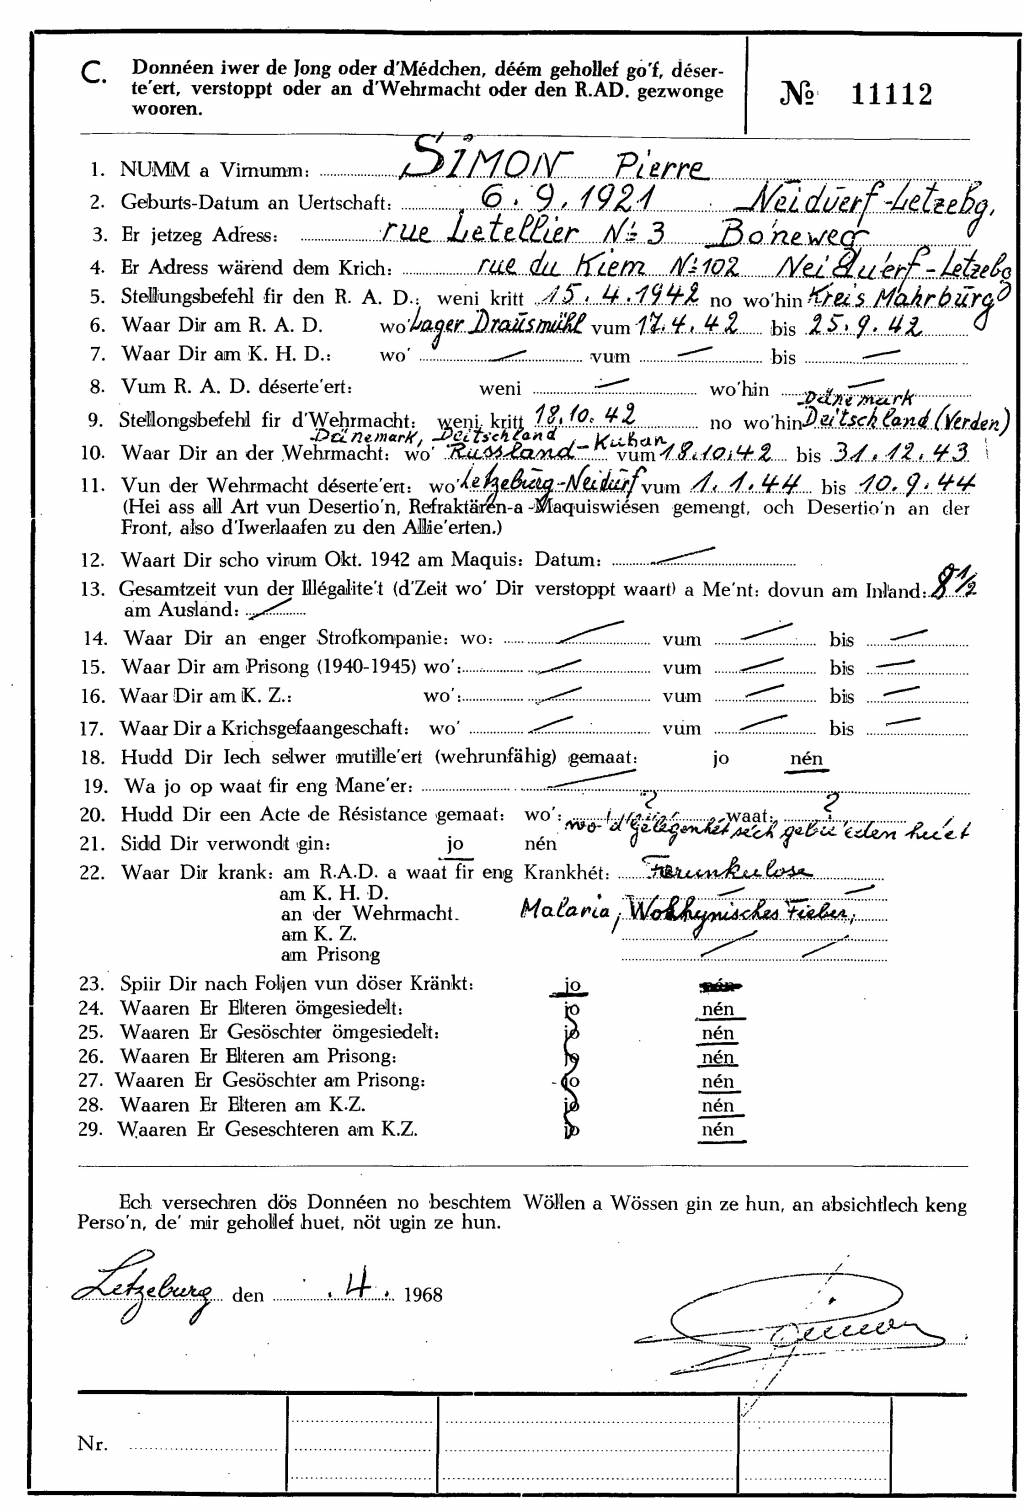 C. Donnéen iwer de Jong oder d'Médchen, déém gehollef go'f, déser-
te'ert, verstoppt oder an d'Wehrmacht oder den R.AD. gezwonge
wooren.
№ 11112
1. NUMM a Virnumm: SIMON Pierre
2. Geburts-Datum an Uertschaft: 6.9.1921 Neiduerf-Letzebg.
3. Er jetzeg Adress: rue Letellier № 3 Boneweg
4. Er Adress wärend dem Krich: rue du Kiem № 102 Neiduerf-Letzebg
5. Stellungsbefehl fir den R. A. D.: weni kritt 15.4.1942 no wo'hin Kreis Mahrburg
6. Waar Dir am R. A. D. wo' Lager Drausmühl vum 17.4.42 bis 25.9.42
7. Waar Dir am K. H. D.: wo' — vum — bis —
8. Vum R. A. D. déserte'ert: weni — wo'hin —
Dänemark
9. Stellongsbefehl fir d'Wehrmacht: weni kritt 18.10.42 no wo'hin Deitschland (Verden)
Dänemark, Deitschland
10. Waar Dir an der Wehrmacht: wo' Russland-Kuban vum 18.10.42 bis 31.12.43
11. Vun der Wehrmacht déserte'ert: wo' Letzeburg-Neidurf vum 1.1.44 bis 10.9.44
(Hei ass all Art vun Desertio'n, Refraktären-a -Maquiswiesen gemengt, och Desertio'n an der
Front, also d'Iwerlaafen zu den Allie'erten.)
12. Waart Dir scho virum Okt. 1942 am Maquis: Datum: —
13. Gesamtzeit vun der Illégalite't (d'Zeit wo' Dir verstoppt waart) a Me'nt: dovun am Inland: 8 1/2
am Ausland: —
14. Waar Dir an enger Strofkompanie: wo: — vum — bis —
15. Waar Dir am Prisong (1940-1945) wo': — vum — bis —
16. Waar Dir am K. Z.: wo': — vum — bis —
17. Waar Dir a Krichsgefaangeschaft: wo' — vum — bis —
18. Hudd Dir Iech selwer mutille'ert (wehrunfähig) gemaat: jo nén
19. Wa jo op waat fir eng Mane'er: —
20. Hudd Dir een Acte de Résistance gemaat: wo': ? waat: ?
wo d'gelegenhet sech gebueden huet
21. Sidd Dir verwondt gin: jo nén
22. Waar Dir krank: am R.A.D. a waat fir eng Krankhét: Furunkulose
am K. H. D. — —
an der Wehrmacht. Malaria, Wolhynisches Fieber,
am K. Z.
am Prisong — —
23. Spiir Dir nach Foljen vun döser Kränkt: jo nén
24. Waaren Er Elteren ömgesiedelt: jo nén
25. Waaren Er Gesöschter ömgesiedelt: jo nén
26. Waaren Er Elteren am Prisong: jo nén
27. Waaren Er Gesöschter am Prisong: jo nén
28. Waaren Er Elteren am K.Z. jo nén
29. Waaren Er Geseschteren am K.Z. jo nén
Ech versechren dös Donnéen no beschtem Wöllen a Wössen gin ze hun, an absichtlech keng
Perso'n, de' mir gehollef huet, nöt ugin ze hun.
Letzeburg den .4. 1968
Simon
Nr.